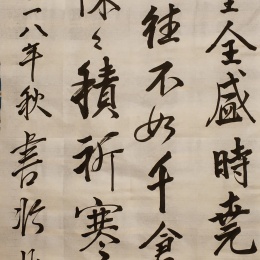 全盛時堯
往不如千倉
積祈寒
一八年秋書於